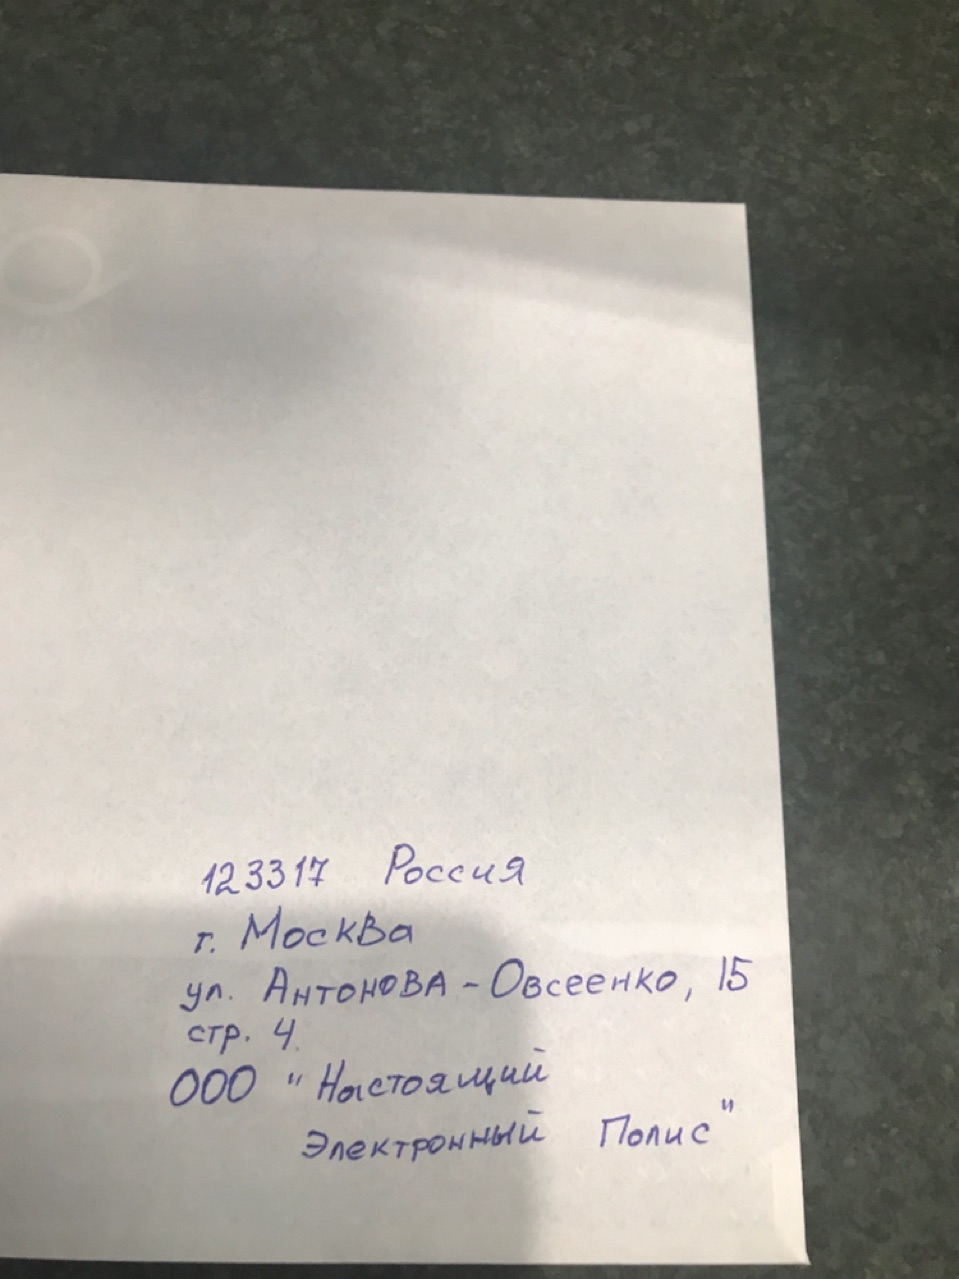 123317 Россия
г. Москва
ул. Антонова-Овсеенко, 15
стр. 4
ООО "Настоящий
Электронный Полис"